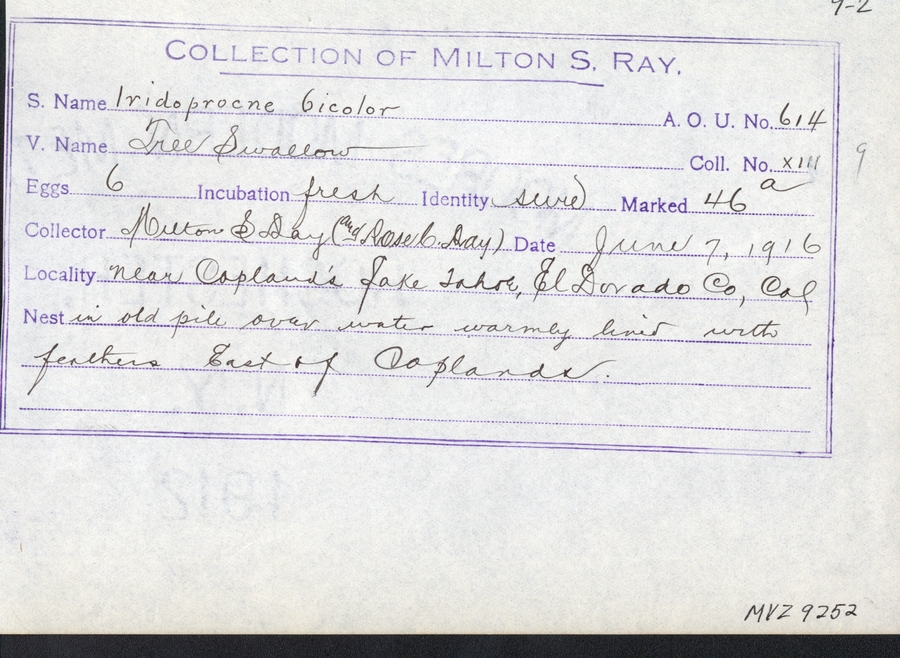 9-2
COLLECTION OF MILTON S. RAY.
S. Name Iridoprocne bicolor A. O. U. No. 614
V. Name Tree Swallow Coll. No. XIII 9
Eggs 6 Incubation fresh Identity sure Marked 46 a
Collector Milton S Ray (and Rose C. Ray) Date June 7, 1916
Locality near Copland's Lake Tahoe, El Dorado Co, Cal
Nest in old pile over water warmly lined with
feathers East of Coplands.
MVZ 9252